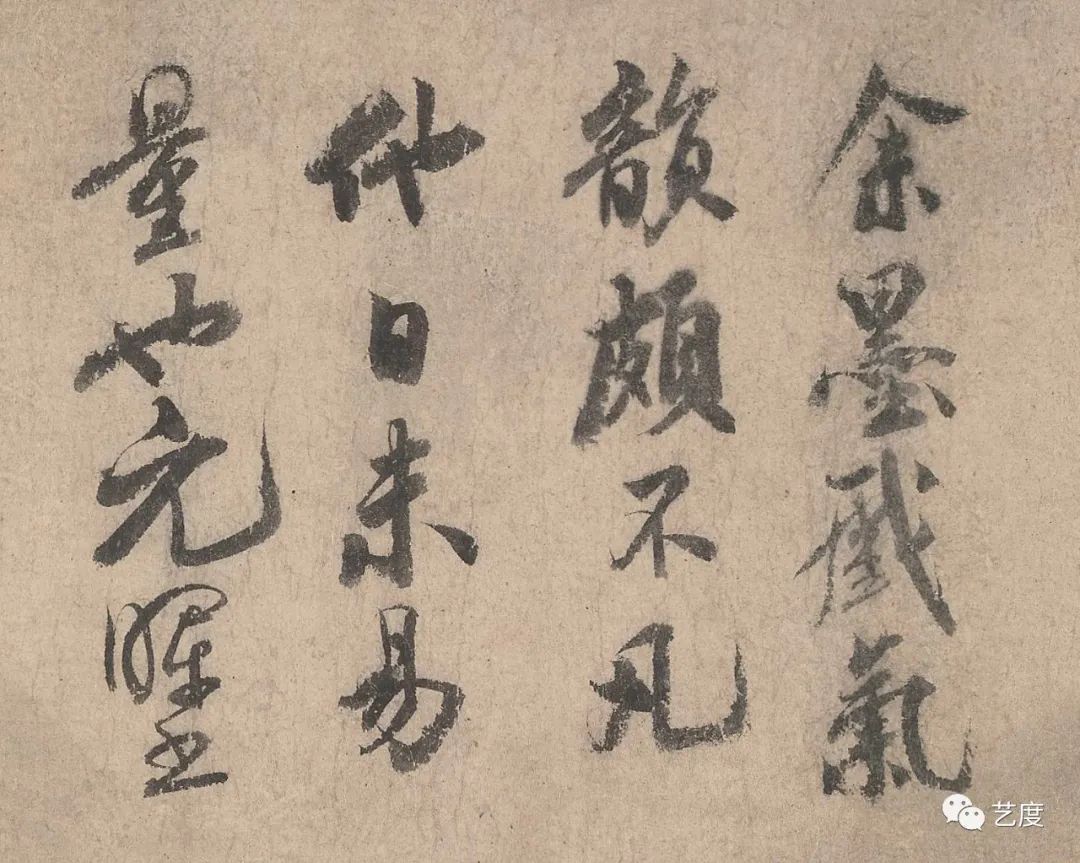 余墨戲氣
韻頗不凡
他日未易
量也元暉書
艺度